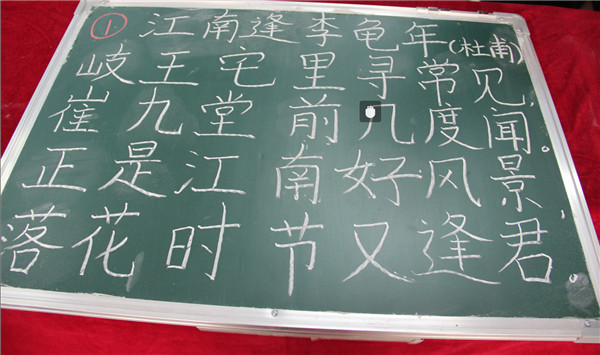 ① 江南逢李龟年(杜甫)
岐王宅里寻常见,
崔九堂前几度闻。
正是江南好风景,
落花时节又逢君。